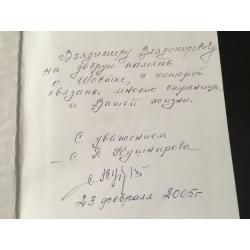 Владимиру Владимировичу
на добрую память
о Шостке, с которой
связаны многие страницы
и Вашей жизни.
С уважением
С. В. Кушнирова
23 февраля 2005г